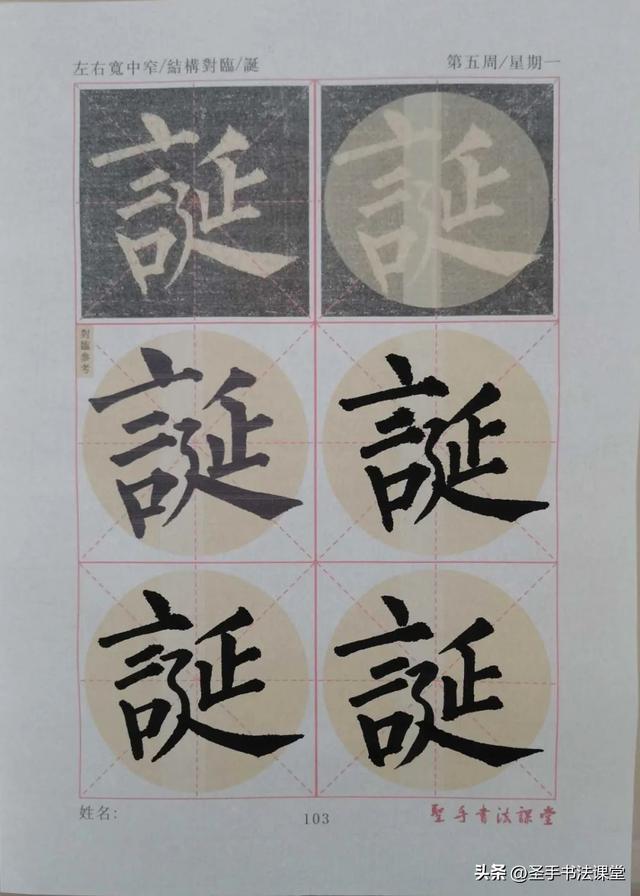 左右寬中窄/結構對臨/誕
第五周/星期一
誕 誕
對臨參考
誕 誕
誕 誕
姓名:
103
聖手書法課堂
头条 @圣手书法课堂